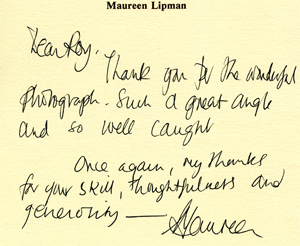 Maureen Lipman
Dear Roy.
Thank you for the wonderful
photograph. Such a great angle
and so well caught
Once again, my thanks
for your skill, thoughtfulness and
generosity — Maureen